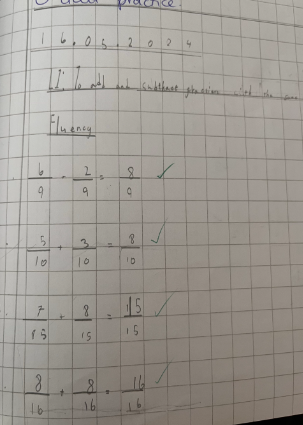 practice
16.05.2024
LI: To add and subtract fractions with the same
Fluency
6/9 + 2/9 = 8/9 ✓
5/10 + 3/10 = 8/10 ✓
7/15 + 8/15 = 15/15 ✓
8/16 + 8/16 = 16/16 ✓